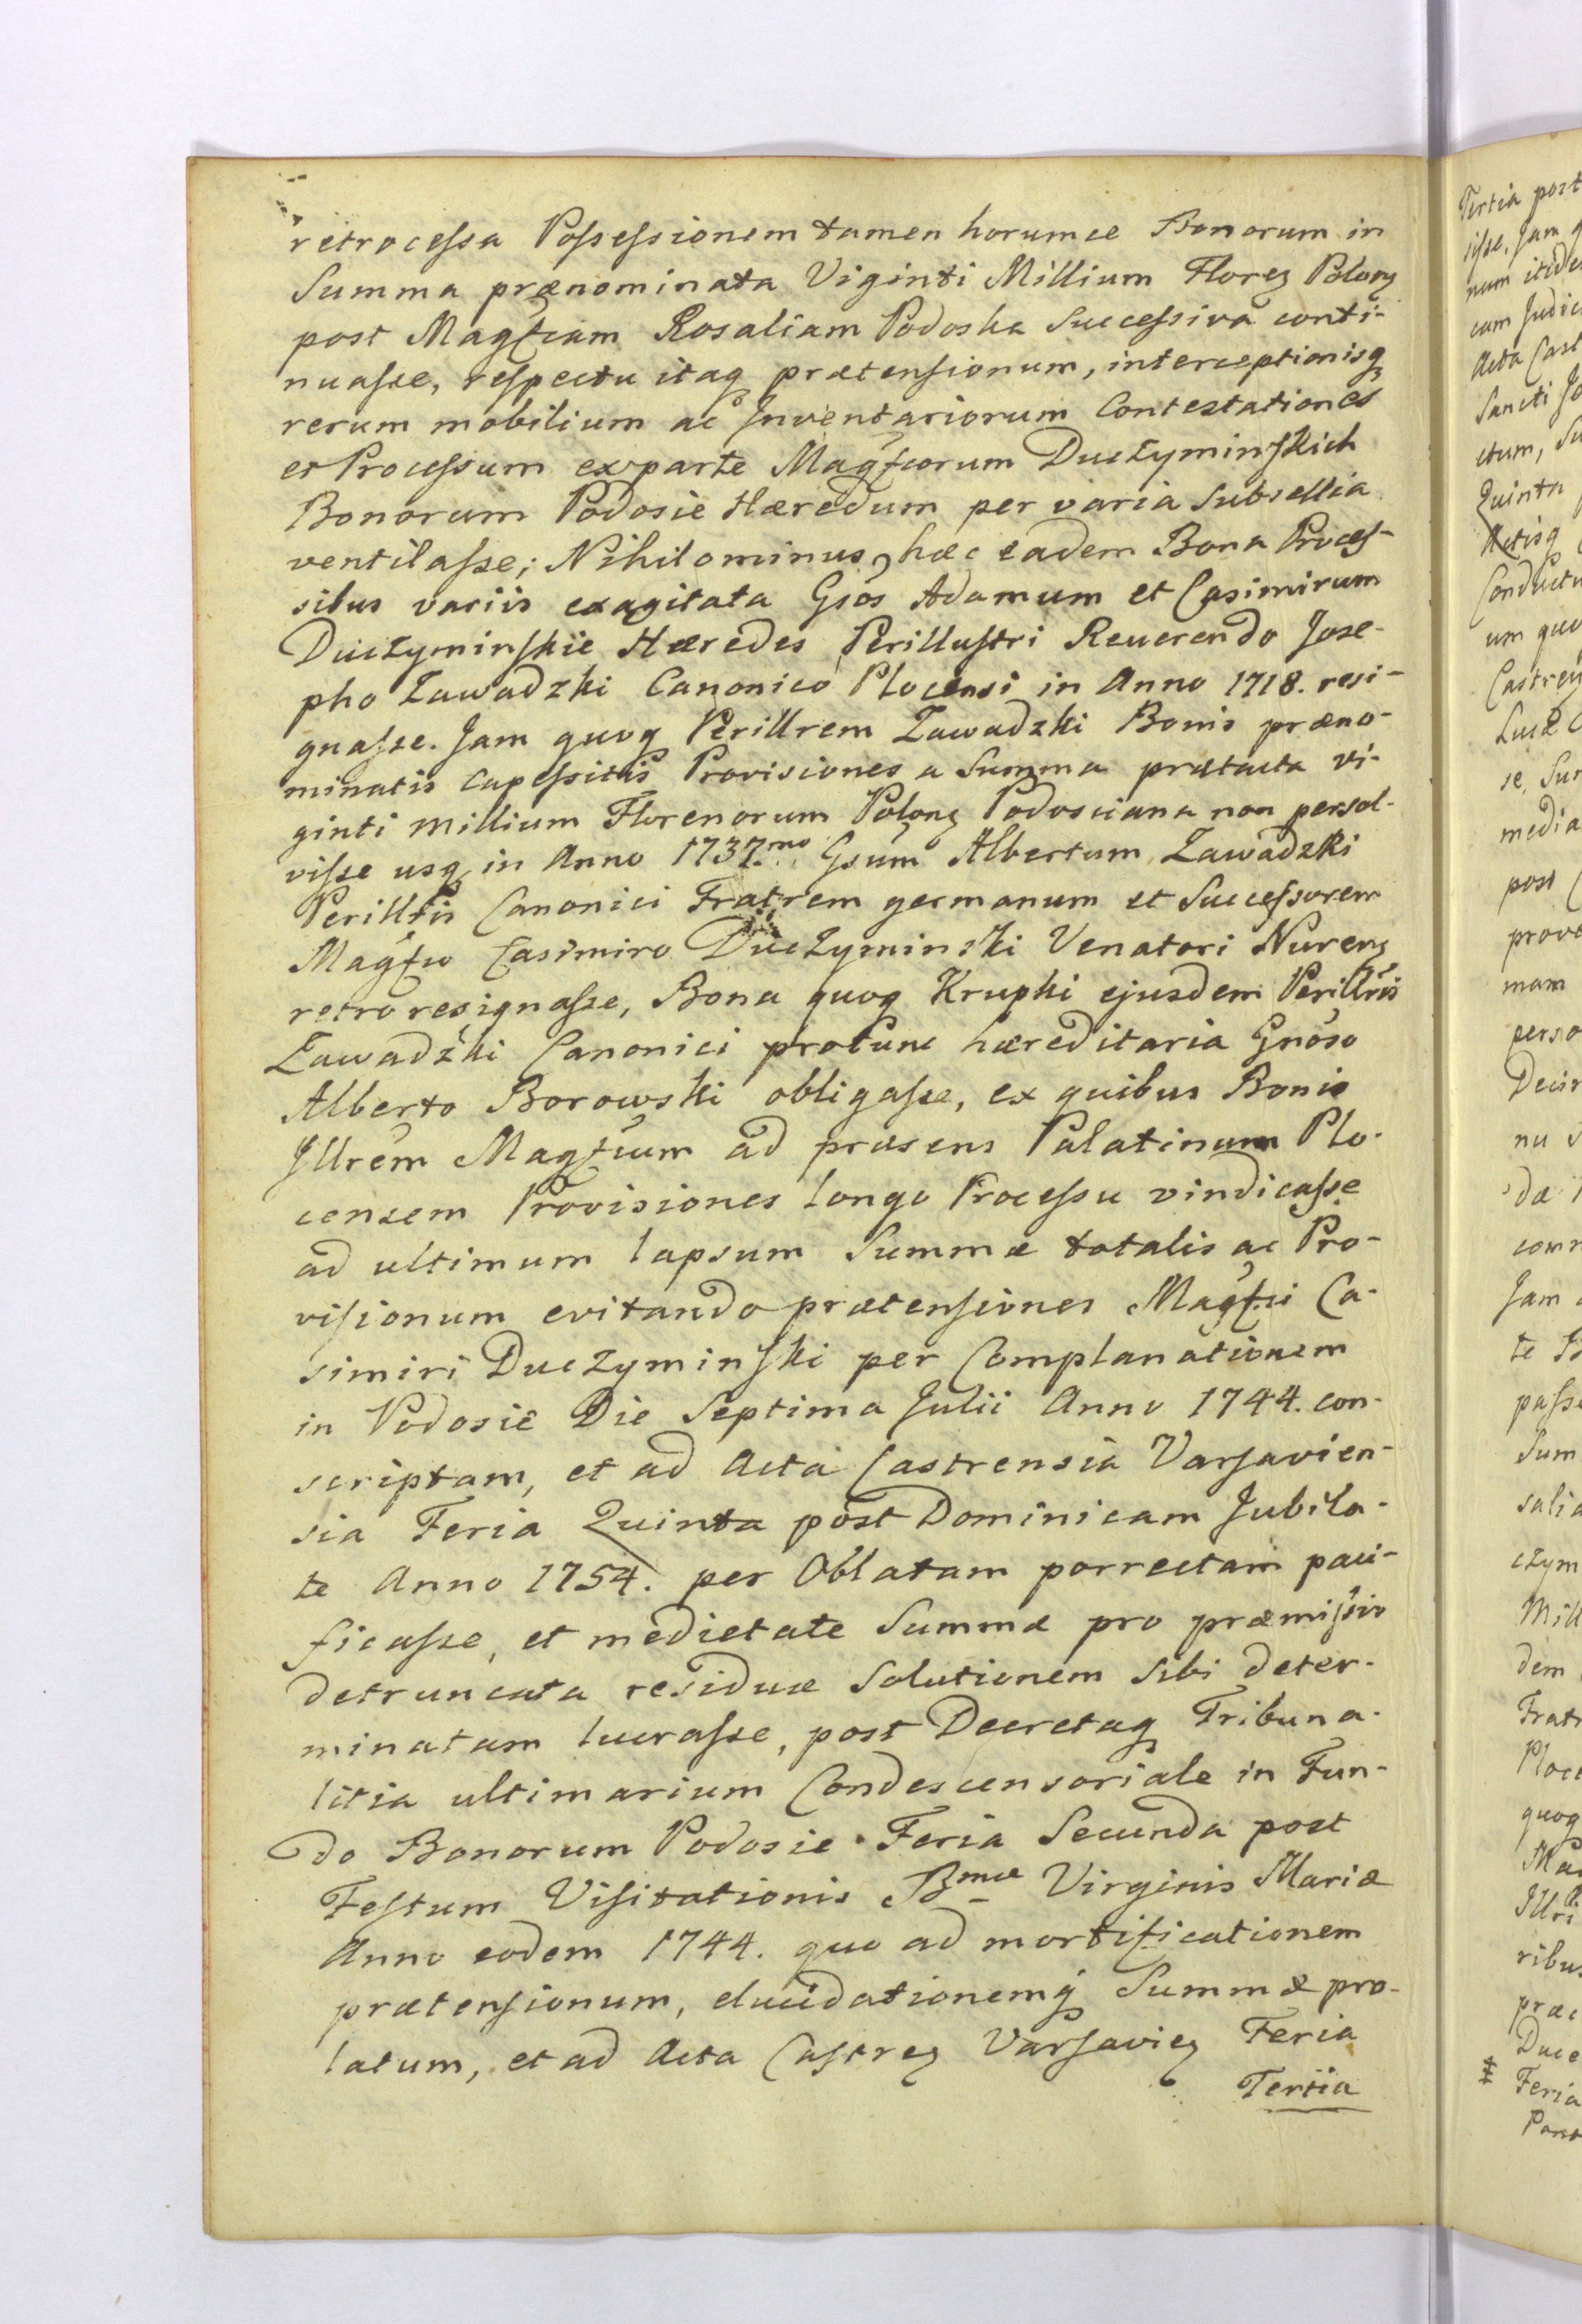 retrocessa Possessionem tamen horumce Bonorum in
Summa prænominata Viginti Millium Florꝫ Polonꝫ
post Magfcam Rosaliam Podoska Successiva conti-
nuasse, respectu itaqꝫ prætensionum, interceptionisqꝫ
rerum mobilium ac Inventariorum Contestationes
et Processum ex parte Magfcorum Duczyminskich
Bonorum Podosie Hæredum per varia Subsellia
ventilasse; Nihilominus, hæc eadem Bona Proces-
sibus variis exagitata Gsos Adamum et Casimirum
Duczyminskie Hæredes Perillustri Reverendo Jose-
pho Zawadzki Canonico Plocensi in Anno 1718. resi-
gnasse. Jam quoqꝫ Perillrem Zawadzki Bonis præno-
minatis capessitis Provisiones a Summa prætacta vi-
ginti millium Florenorum Polonꝫ Podosciana non persol-
visse usqꝫ in Anno 1737.mo Gsum Albertum Zawadzki
Perillris Canonici Fratrem germanum et Successorem
Magfco Casimiro Duczyminski Venatori Nurenꝫ
retro resignasse, Bona quoqꝫ Krupki ejusdem Perillris
Zawadzki Canonici protunc hæreditaria Gnoso
Alberto Borowski obligasse, ex quibus Bonis
Jllrem Magfcum ad præsens Palatinum Plo-
censem Provisiones longo Processu vindicasse
ad ultimum lapsum Summæ totalis ac Pro-
visionum evitando prætensiones Magfci Ca-
simiri Duczyminski per Complanationem
in Podosie Die Septima Julii Anno 1744. con-
scriptam, et ad Acta Castrensia Varsavien-
sia Feria Quinta post Dominicam Jubila-
te Anno 1754. per Oblatam porrectam paci-
ficasse, et medietate Summæ pro præmissis
detruncata residuæ Solutionem sibi deter-
minatam lucrasse, post Decretaqꝫ Tribuna-
litia ultimarium Condescensoriale in Fun-
do Bonorum Podosie Feria Secunda post
Festum Visitationis Bmæ Virginis Mariæ
Anno eodem 1744. quo ad mortificationem
prætensionum, elucidationemqꝫ Summæ pro-
latum, et ad Acta Castrꝫ Varsavieꝫ Feria
Tertia
Tertia post
sisse, Jam
num itide
cam Judic
Acta Cast
Sancti Jo
ctum, Su
Quinta
Actisqꝫ
Conductu
um quo
Castren
Luciæ
se, Sum
media
post
prove
mam
perso
Decr
nu
dæ
com
Jam
te
passe
Sum
salia
czym
Mill
dem
Fratr
Ploce
quoqꝫ
Ma
Jllri
ribus
præ
Ducz
Feria
Pano